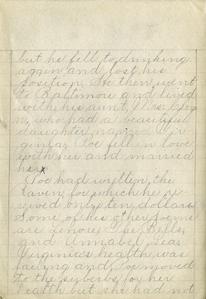 but he fell to drinking
again and lost his
position. He then went
to Baltimore and lived
with his aunt, Mrs.
who had a beautiful
daughter, named Vir-
ginia. Poe fell in love
with her and married
her x
Poe had written, the
raven, for which he re-
ceived only ten dollars
Some of his other poems
are Lenore, The Bells,
and Annabel Lee.
Virginia's health was
failing and Poe moved
to the suburbs for her
health but she had not